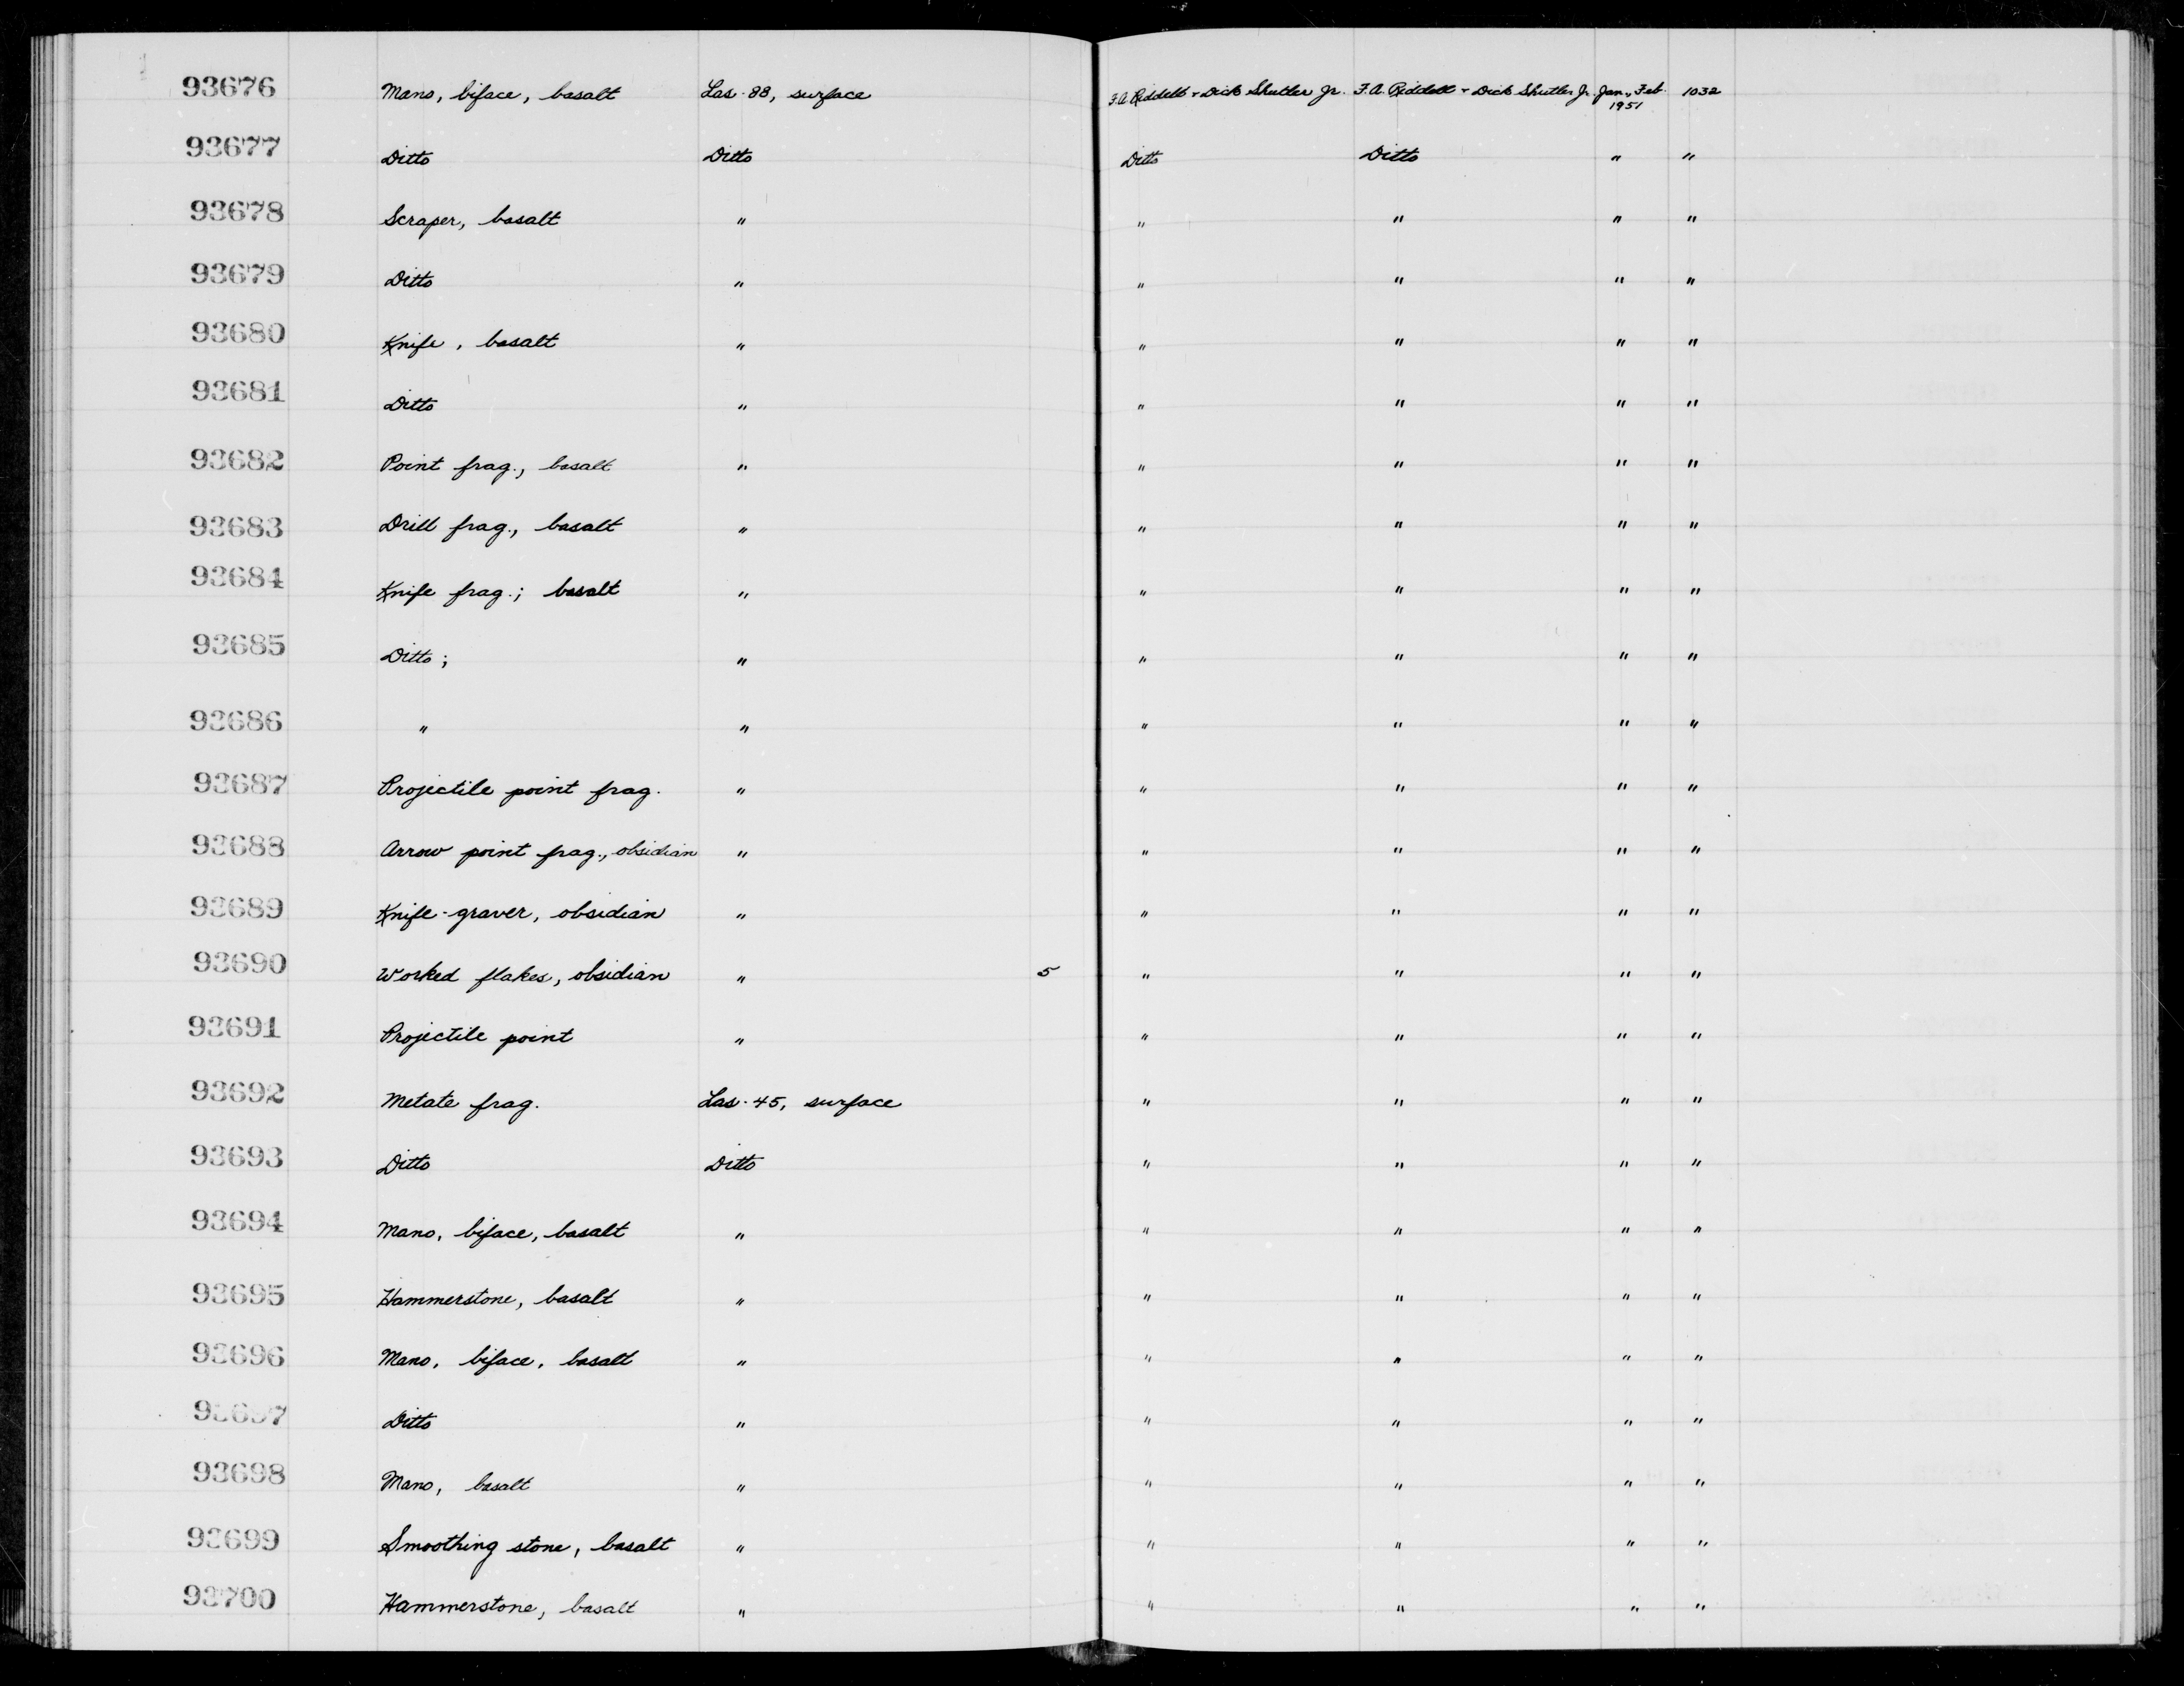 93676 Mano, biface, basalt Las-88, surface F.A. Riddell + Dick Shutler Jr. F.A. Riddell + Dick Shutler Jr. Jan., Feb. 1951 1032
93677 Ditto Ditto Ditto Ditto " "
93678 Scraper, basalt " " " " "
93679 Ditto " " " " "
93680 Knife, basalt " " " " "
93681 Ditto " " " " "
93682 Point frag., basalt " " " " "
93683 Drill frag., basalt " " " " "
93684 Knife frag.; basalt " " " " "
93685 Ditto; " " " " "
93686 " " " " " "
93687 Projectile point frag. " " " " "
93688 Arrow point frag., obsidian " " " " "
93689 Knife-graver, obsidian " " " " "
93690 Worked flakes, obsidian " 5 " " " "
93691 Projectile point " " " " "
93692 Metate frag. Las-45, surface " " " "
93693 Ditto Ditto " " " "
93694 Mano, biface, basalt " " " " "
93695 Hammerstone, basalt " " " " "
93696 Mano, biface, basalt " " " " "
93697 Ditto " " " " "
93698 Mano, basalt " " " " "
93699 Smoothing stone, basalt " " " " "
93700 Hammerstone, basalt " " " " "